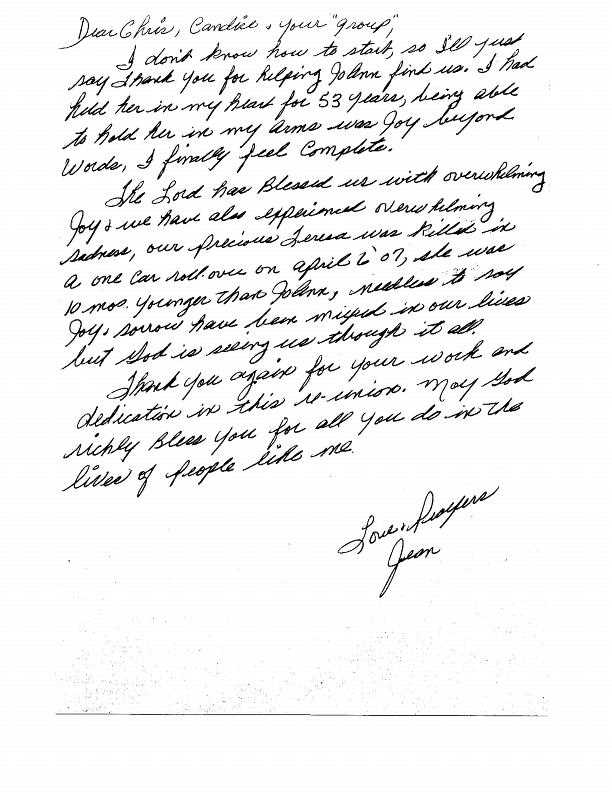 Dear Chris, Candice & your "group",
I don't know how to start, so I'll just
say Thank you for helping JoAnn find us. I had
held her in my heart for 53 years, being able
to hold her in my arms was Joy beyond
Words, I finally feel Complete.
The Lord has Blessed us with overwhelming
Joy & we have also experienced overwhelming
sadness, our precious Teresa was killed in
a one car roll-over on april 6 '07, she was
10 mos. younger than JoAnn, needless to say
Joy & sorrow have been mixed in our lives
but God is seeing us through it all.
Thank you again for your work and
dedication in this re-union. May God
richly Bless you for all you do in the
lives of people like me.
Love & Prayers
Jean